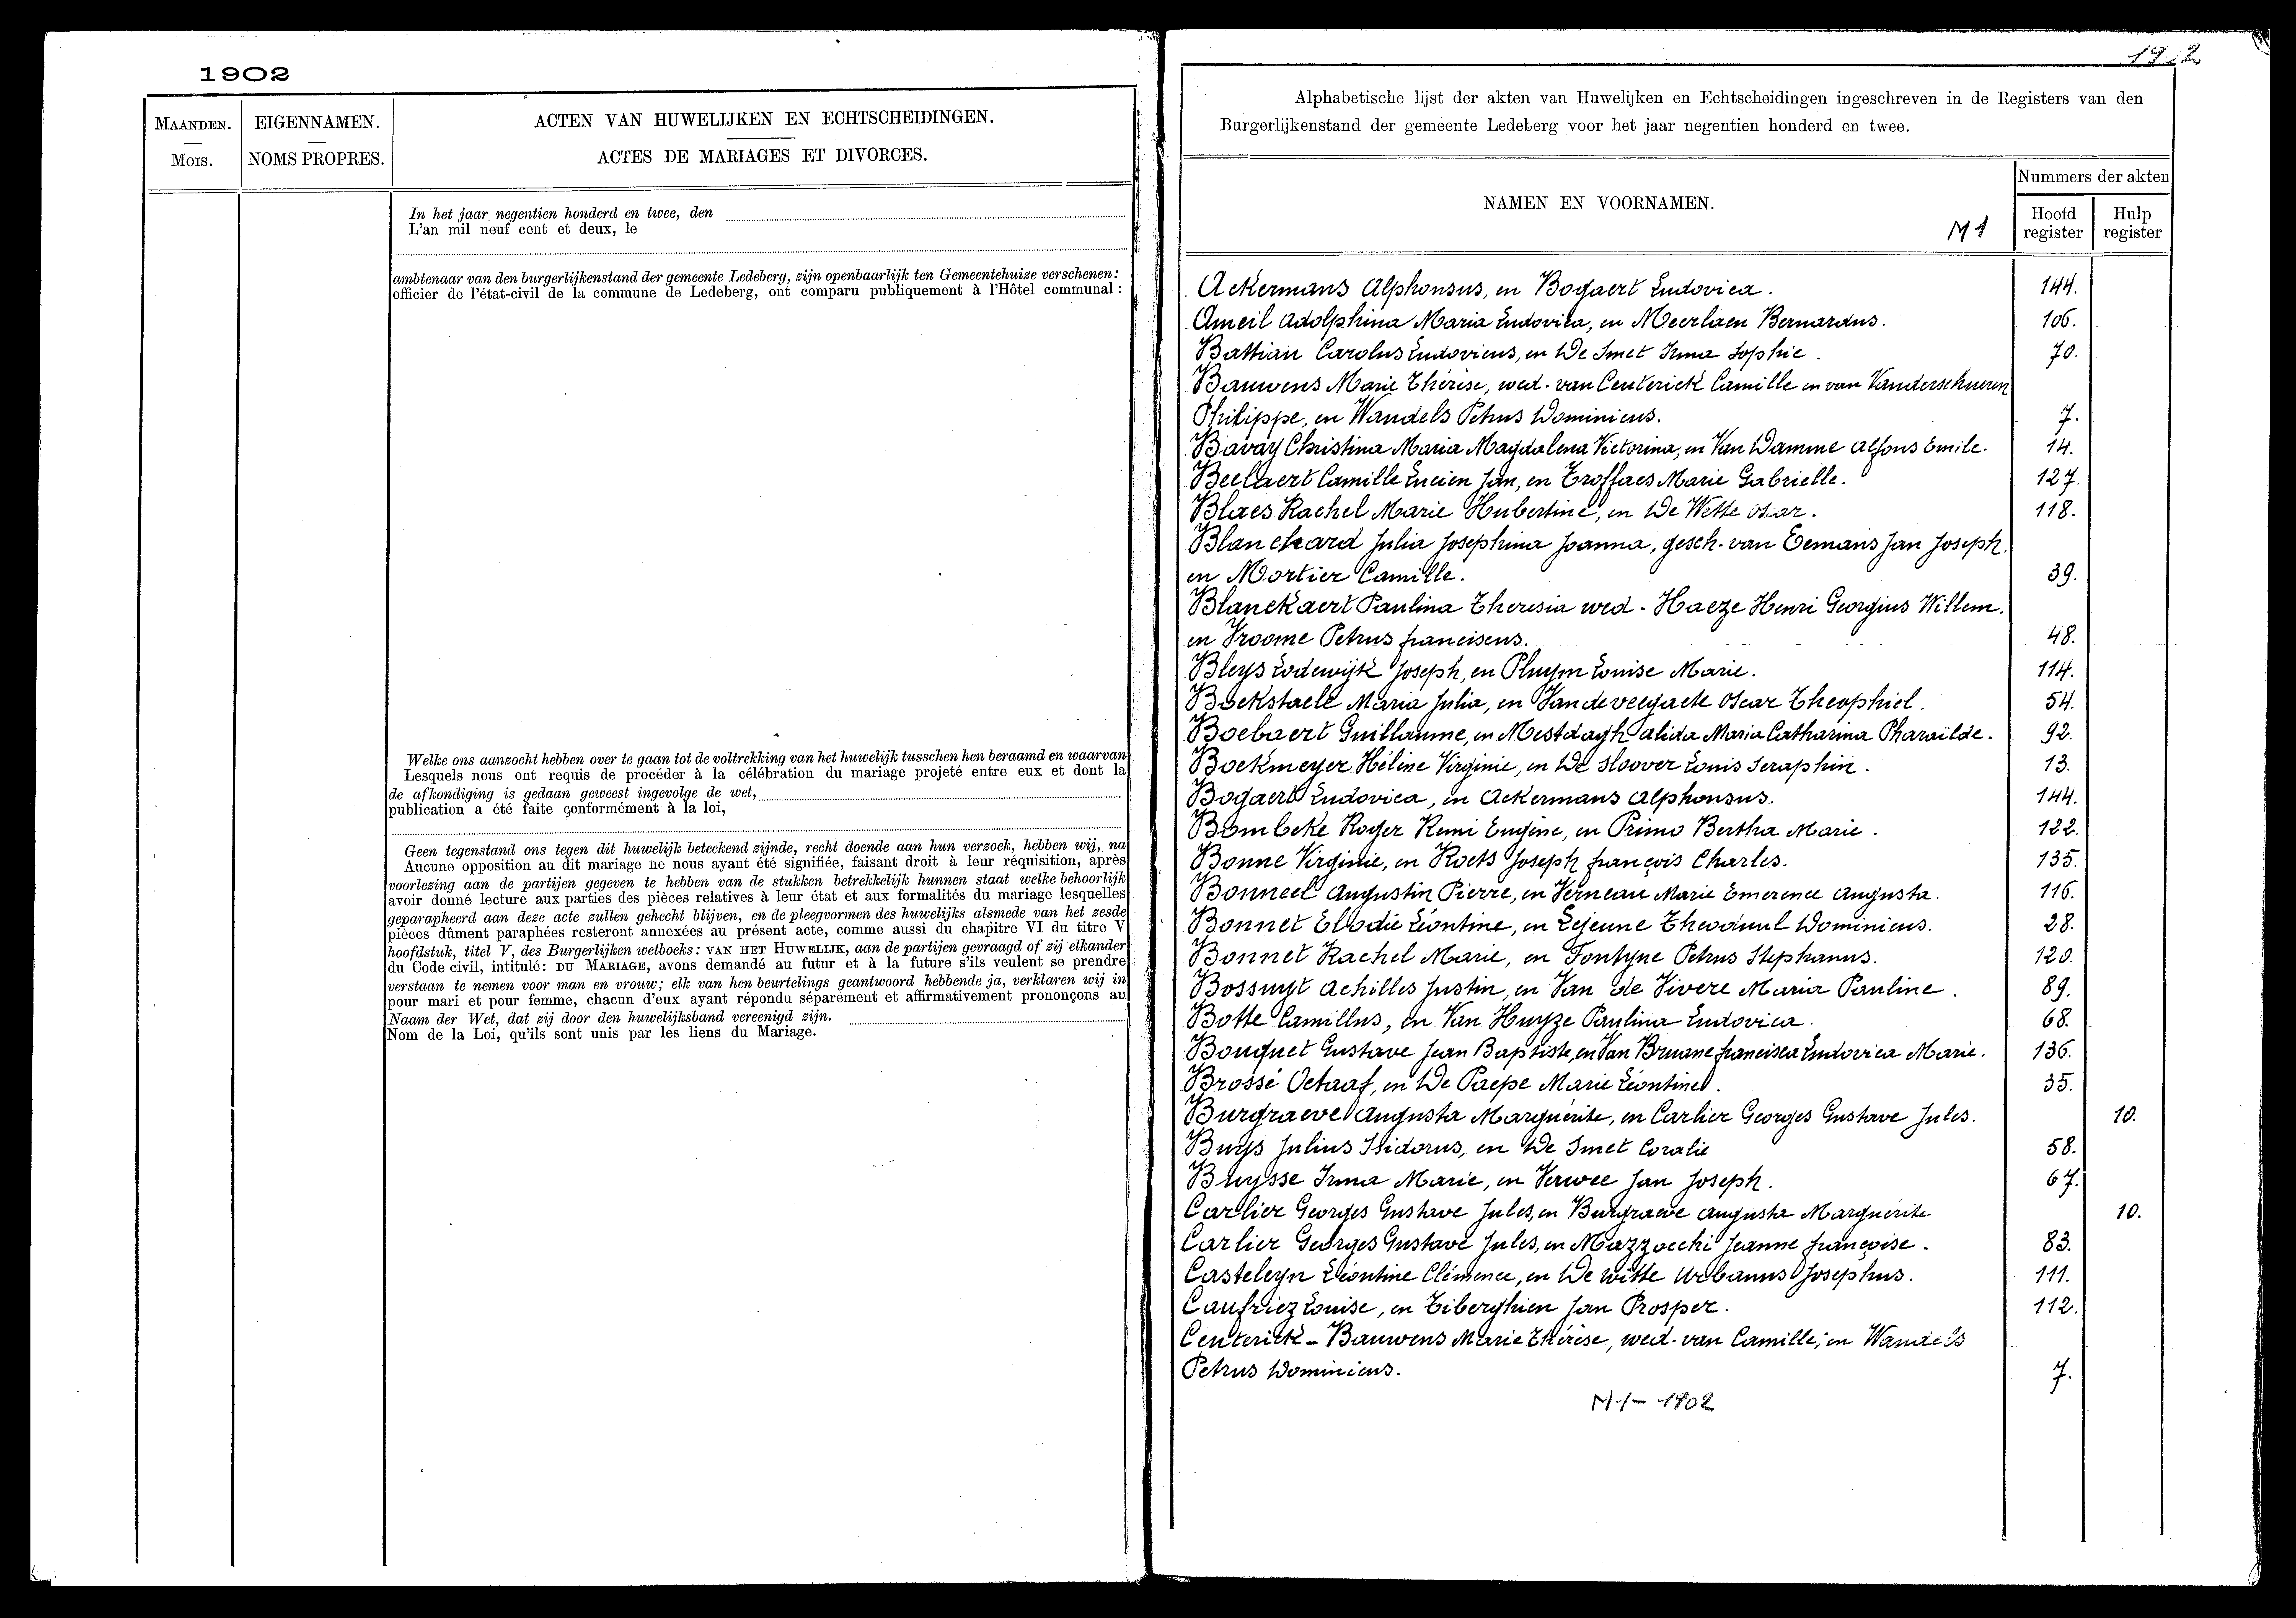 1902
MAANDEN.
MOIS.
EIGENNAMEN.
NOMS PROPRES.
ACTEN VAN HUWELIJKEN EN ECHTSCHEIDINGEN.
ACTES DE MARIAGES ET DIVORCES.
In het jaar negentien honderd en twee, den
L'an mil neuf cent et deux, le
ambtenaar van den burgerlijkenstand der gemeente Ledeberg, zijn openbaarlijk ten Gemeentehuize verschenen:
officier de l'état-civil de la commune de Ledeberg, ont comparu publiquement à l'Hôtel communal:
Welke ons aanzocht hebben over te gaan tot de voltrekking van het huwelijk tusschen hen beraamd en waarvan
Lesquels nous ont requis de procéder à la célébration du mariage projeté entre eux et dont la
de afkondiging is gedaan geweest ingevolge de wet,
publication a été faite conformément à la loi,
Geen tegenstand ons tegen dit huwelijk beteekend zijnde, recht doende aan hun verzoek, hebben wij, na
Aucune opposition au dit mariage ne nous ayant été signifiée, faisant droit à leur réquisition, après
voorlezing aan de partijen gegeven te hebben van de stukken betrekkelijk hunnen staat welke behoorlijk
avoir donné lecture aux parties des pièces relatives à leur état et aux formalités du mariage lesquelles
geparapheerd aan deze acte zullen gehecht blijven, en de pleegvormen des huwelijks alsmede van het zesde
pièces dûment paraphées resteront annexées au présent acte, comme aussi du chapitre VI du titre V
hoofdstuk, titel V, des Burgerlijken wetboeks: VAN HET HUWELIJK, aan de partijen gevraagd of zij elkander
du Code civil, intitulé: DU MARIAGE, avons demandé au futur et à la future s'ils veulent se prendre
verstaan te nemen voor man en vrouw; elk van hen beurtelings geantwoord hebbende ja, verklaren wij in
pour mari et pour femme, chacun d'eux ayant répondu séparément et affirmativement prononçons au
Naam der Wet, dat zij door den huwelijksband vereenigd zijn.
Nom de la Loi, qu'ils sont unis par les liens du Mariage.
1902
Alphabetische lijst der akten van Huwelijken en Echtscheidingen ingeschreven in de Registers van den
Burgerlijkenstand der gemeente Ledeberg voor het jaar negentien honderd en twee.
NAMEN EN VOORNAMEN.
M 1
Nummers der akten
Hoofd register
Hulp register
Ackermans Alphonsus, en Bogaert Ludovica. 144.
Ameil Adolphina Maria Ludovica, en Meerlaen Bernardus. 106.
Battiau Carolus Ludovicus, en De Smet Irma Sophie. 70.
Bauwens Marie Thérèse, wed. van Centerick Camille en van Vanderschueren
Philippe, en Wandels Petrus Dominicus. 7.
Bavay Christina Maria Magdalena Victorina, en Van Damme Alfons Emile. 14.
Beelaert Camille Lucien Jan, en Troffaes Marie Gabrielle. 127.
Blaes Rachel Marie Hubertine, en De Wette Oscar. 118.
Blanchard Julia Josephina Joanna, gesch. van Eemans Jan Joseph.
en Mortier Camille. 39.
Blanckaert Paulina Theresia wed. Haeze Henri Georgius Willem.
en Vroome Petrus franciscus. 48.
Bleys Lodewijk Joseph, en Pluym Louise Marie. 114.
Bockstaele Maria Julia, en Vandeveegaete Oscar Theophiel. 54.
Boebaert Guillaume, en Mestdagh alida Maria Catharina Pharaïlde. 92.
Boekmeyer Hélène Virginie, en De Sloover Louis Seraphin. 13.
Bogaert Ludovica, en Ackermans Alphonsus. 144.
Bombeke Roger Remi Eugène, en Primo Bertha Marie. 122.
Bonne Virginie, en Roets Joseph françois Charles. 135.
Bonneel Augustin Pierre, en Verneau Marie Emerence Augusta. 116.
Bonnet Elodie Léontine, en Lejeune Theoduul Dominicus. 28.
Bonnet Rachel Marie, en Fontyne Petrus Stephanus. 120.
Bossuyt Achilles Justin, en Van de Vivere Maria Pauline. 89.
Botte Camillus, en Van Huyze Paulina Ludovica. 68.
Bouquet Gustave Jean Baptiste, en Van Bruane francisca Ludovica Marie. 136.
Brossé Octaaf, en De Paepe Marie Léontine. 35.
Burgraeve Augusta Marguérite, en Carlier Georges Gustave Jules. 10.
Buys Julius Isidorus, en De Smet Coralie 58.
Buysse Irma Marie, en Verwee Jan Joseph. 67.
Carlier Georges Gustave Jules, en Burgraeve Augusta Marguérite 10.
Carlier Georges Gustave Jules, en Mazzocchi Jeanne françoise. 83.
Casteleyn Léontine Clémence, en De Witte Urbanus Josephus. 111.
Caufriez Louise, en Tiberghien Jan Prosper. 112.
Centerick - Bauwens Marie Thérèse, wed. van Camille, en Wandels
Petrus Dominicus. 7.
M.1 - 1902